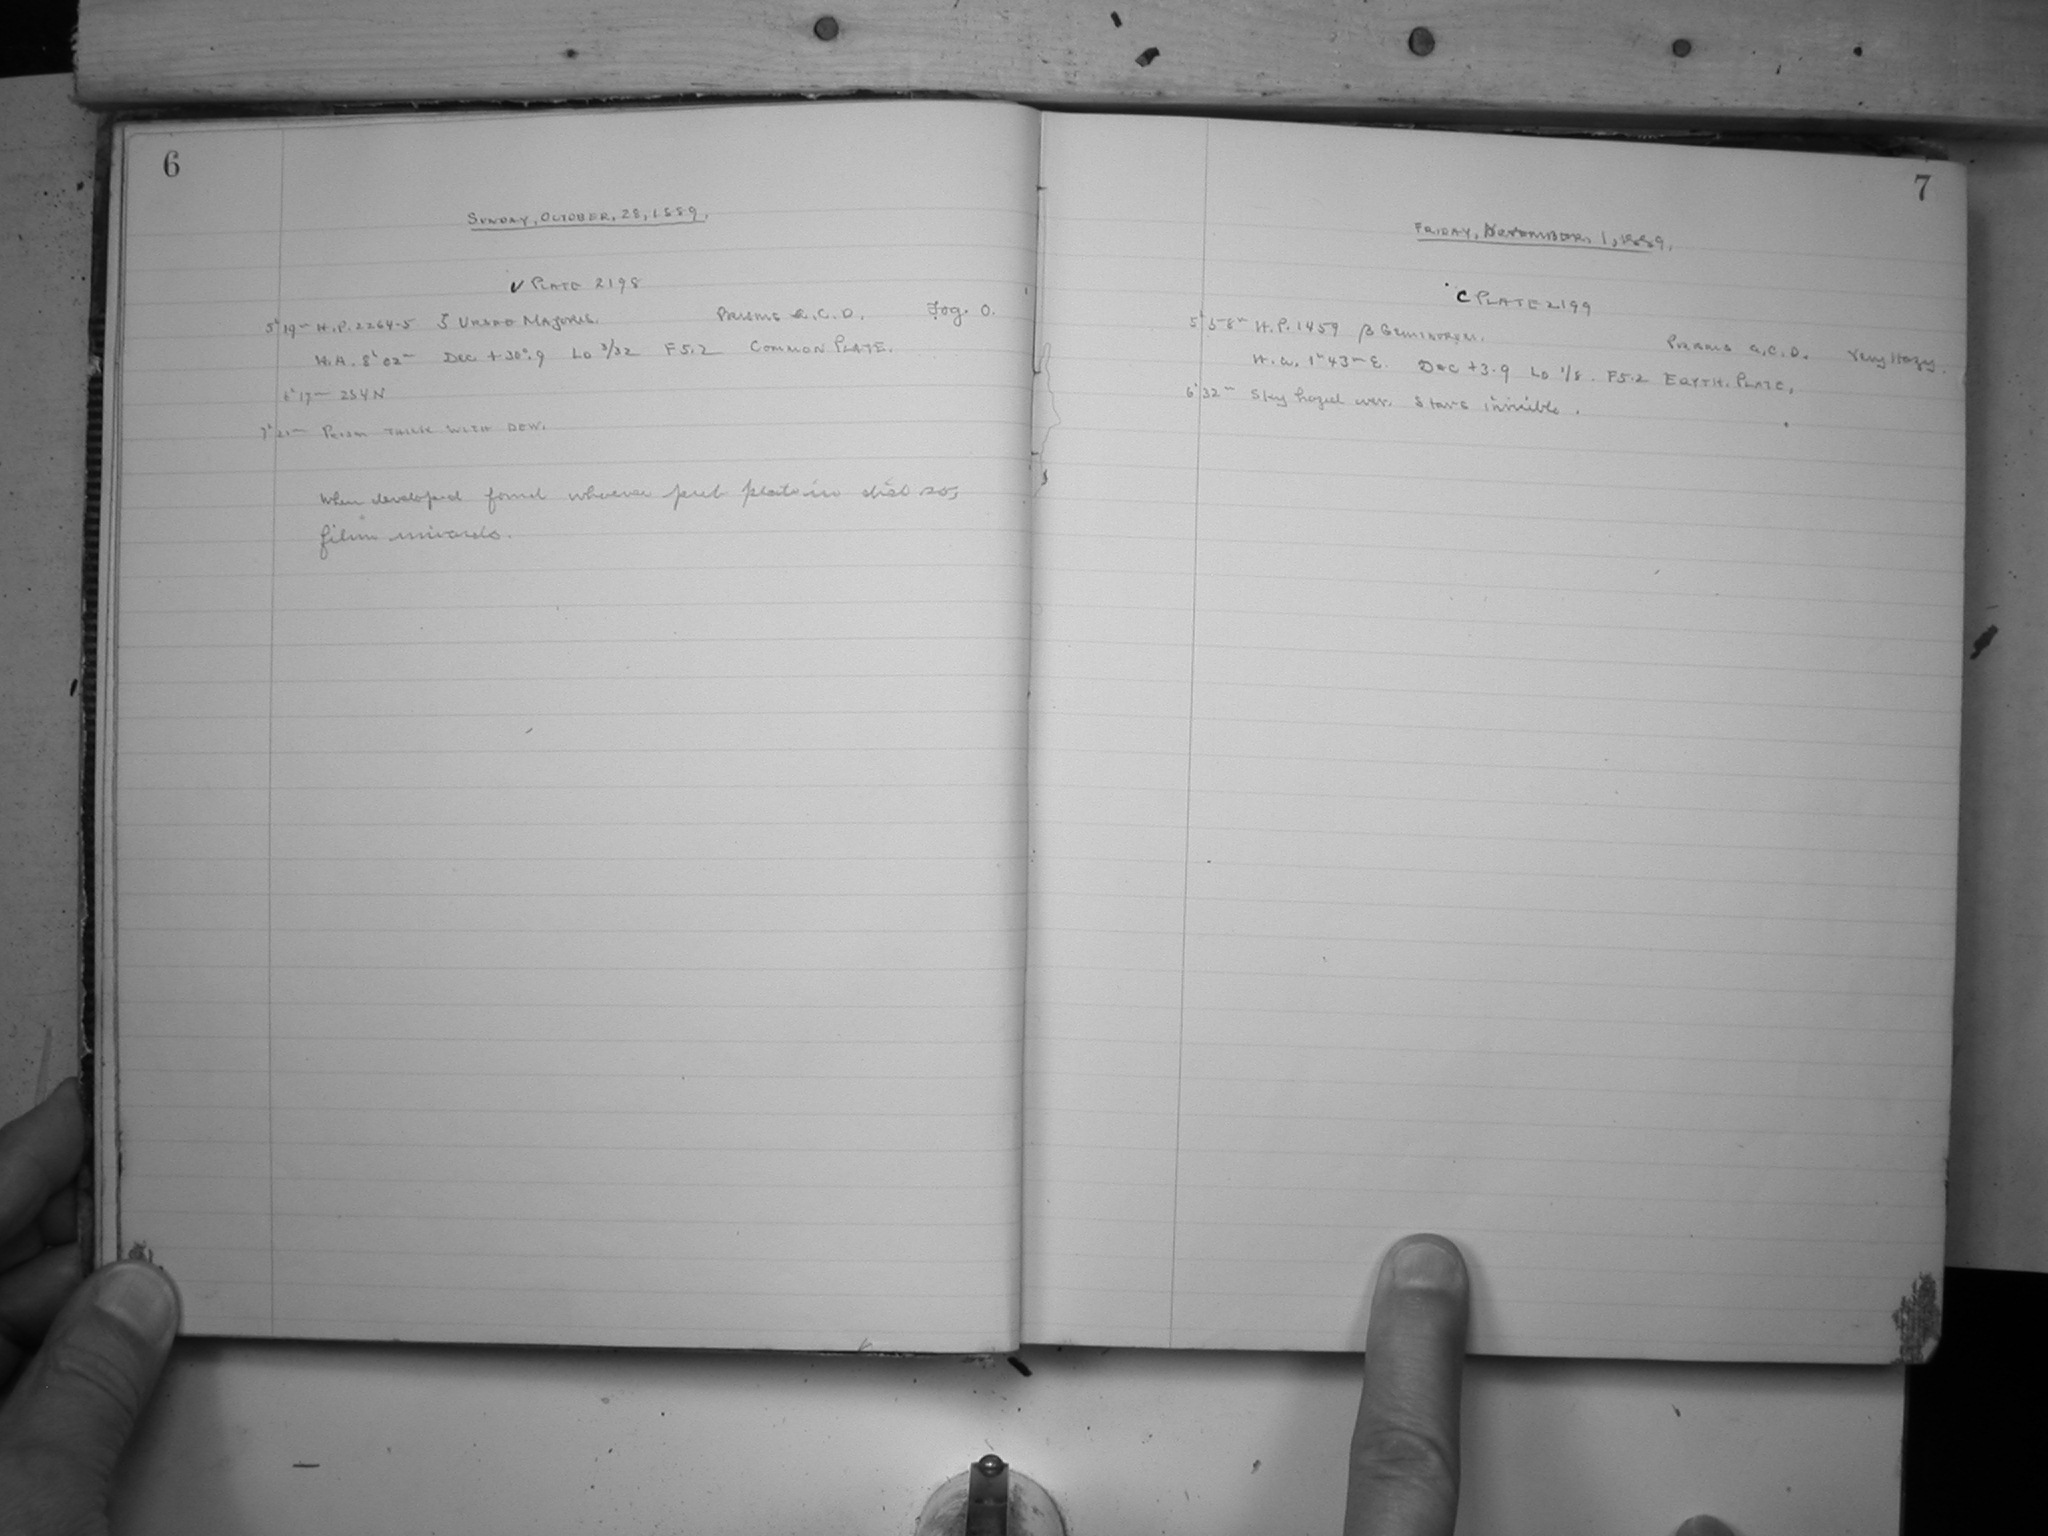 6
SUNDAY, OCTOBER, 28, 1889.
✓ PLATE 2198
5h 19m H.P. 2264-5 ξ URSAE MAJORIS. PRISMS a.C.D. Fog. 0.
H.A. 8h 02m DEC +30°.9 LO 3/32 F 5.2 COMMON PLATE.
6h 17m 254 N
7h 21m PRISM THICK WITH DEW.
When developed found whoever put plate in did so,
film inwards.
7
FRIDAY, NOVEMBER, 1, 1889.
C PLATE 2199
5h 58m H.P. 1459 β GEMINORUM. PRISMS a.C.D. Very Hazy.
H.A. 1h 43m E. DEC +3.9 LO 1/8. F 5.2 ERYTH. PLATE.
6h 32m Sky hazed over. Stars invisible.